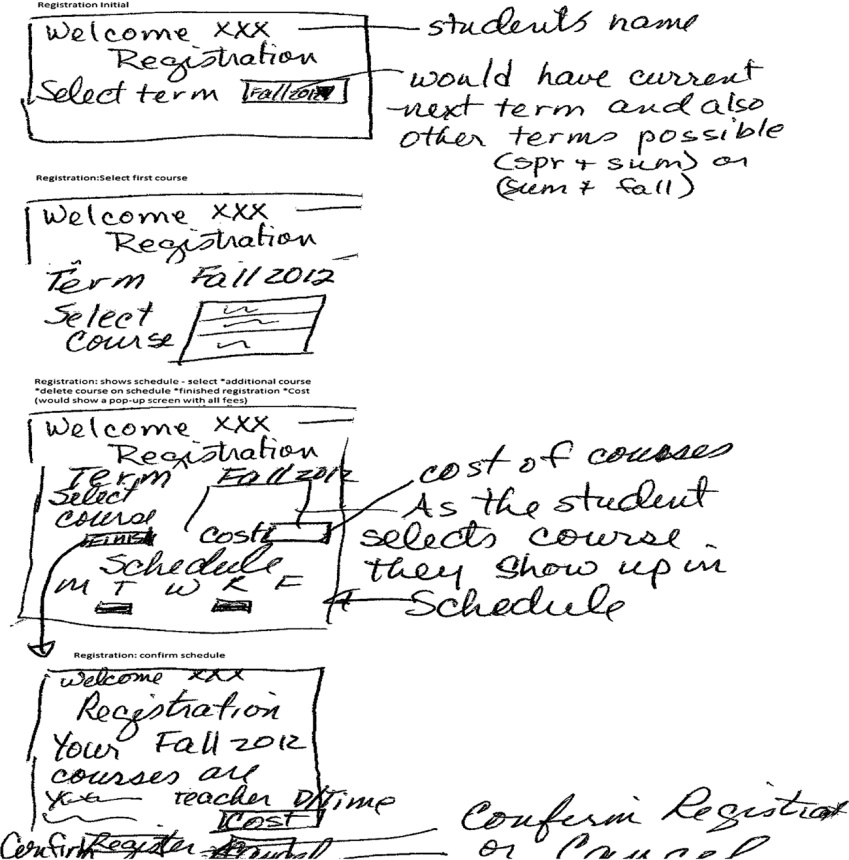 Registration Initial
Welcome XXX
students name
Registration
Select term Fall 2012
would have current
next term and also
other terms possible
(spr + sum) or
(sum + fall)
Registration:Select first course
Welcome XXX
Registration
Term Fall 2012
Select
Course
Registration: shows schedule - select *additional course
*delete course on schedule *finished registration *Cost
(would show a pop-up screen with all fees)
Welcome XXX
Registration
Term Fall 2012
Select
course
Finish
Cost
cost of courses
As the student
selects course
they show up in
Schedule
Schedule
M T W R F
Registration: confirm schedule
Welcome xxx
Registration
Your Fall 2012
courses are
teacher D/Time
Cost
Confirm Register
Confirm Registrat
or Cancel